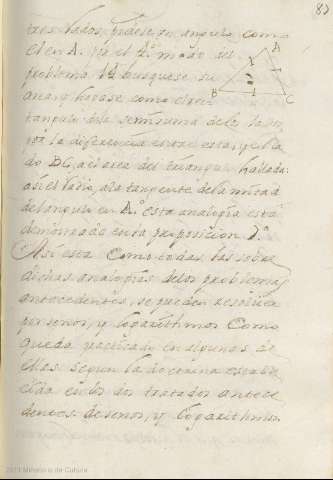 87
tres lados, pidese un angulo, como
el en A. Para el 2º modo del
problema 12 busquese su
area, y hagase como el rec-
tangulo de la semisuma de los la
la diferencia entre esta, y el la
do BC, a el area del triangulo hallada:
asi el Radio, a la tangente de la mitad
del angulo en A. esta analogia está
demonstrada en la proposicion 7ª
Asi esta como todas las sobre
dichas analogias de los problemas
antecedentes, se pueden resolver
por senos, y logarithmos Como
queda practicado en algunos de
ellos segun la doctrina estable
cida en los dos tratados antece
dentes de senos, y logarithmos.
A
B
C
2011 Ministerio de Cultura